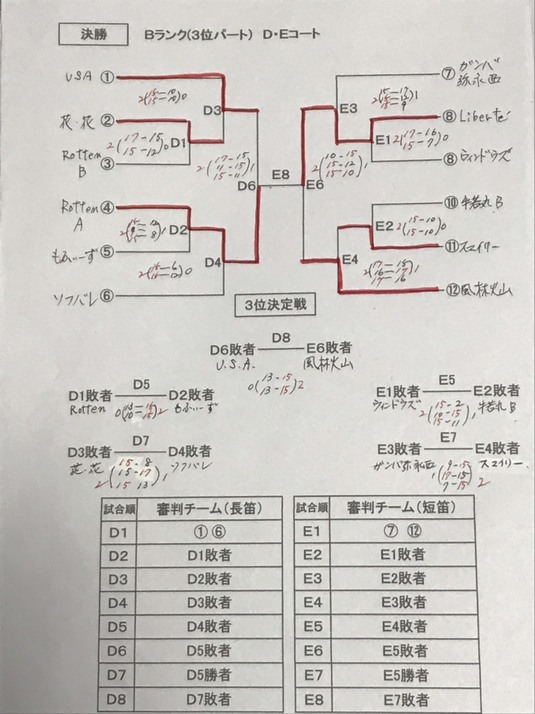 決勝 Bランク(3位パート) D・Eコート
U.S.A ①
花・花 ②
Rotten B ③
Rotten A ④
もふぃーず ⑤
ソフバレ ⑥
D3
D1 2(17-15 15-12)0
D6 2(17-15 11-15 15-11)1
D2
D4
E8
⑦ ガンバ弥永西
⑧ Liberte
⑧ ウィンドウズ
⑩ 牛若丸B
⑪ スマイリー
⑫ 風林火山
E3
E1 2(17-16 15-7)0
E6 2(10-15 15-12 15-10)1
E2 2(15-10 15-10)0
E4
3位決定戦
D8
D6敗者 E6敗者
U.S.A. 風林火山
0(13-15 13-15)2
D5
D1敗者 D2敗者
Rotten もふぃーず
E5
E1敗者 E2敗者
ウィンドウズ 2(15-2 10-15 15-11)1 牛若丸B
D7
D3敗者 D4敗者
花・花 2(15-8 15-17 15-13)1 ソフバレ
E7
E3敗者 E4敗者
ガンバ弥永西 1(9-15 17-15 7-15)2 スマイリー
試合順 審判チーム(長笛)
D1 ① ⑥
D2 D1敗者
D3 D2敗者
D4 D3敗者
D5 D4敗者
D6 D5敗者
D7 D5勝者
D8 D7敗者
試合順 審判チーム(短笛)
E1 ⑦ ⑫
E2 E1敗者
E3 E2敗者
E4 E3敗者
E5 E4敗者
E6 E5敗者
E7 E5勝者
E8 E7敗者